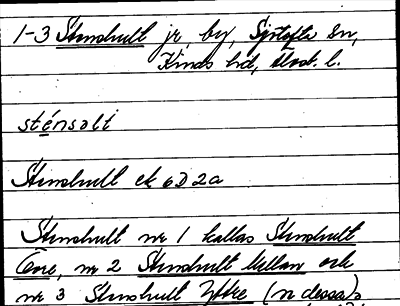 1-3 Stenshult jr, by, Sjötofta sn,
Kinds hd, Älvsb. l.
sténsɑlt
Stenshult ek 6D2a
Stenshult nr 1 kallas Stenshult
Övre, nr 2 Stenshult Mellan och
nr 3 Stenshult Yttre (n dessa).